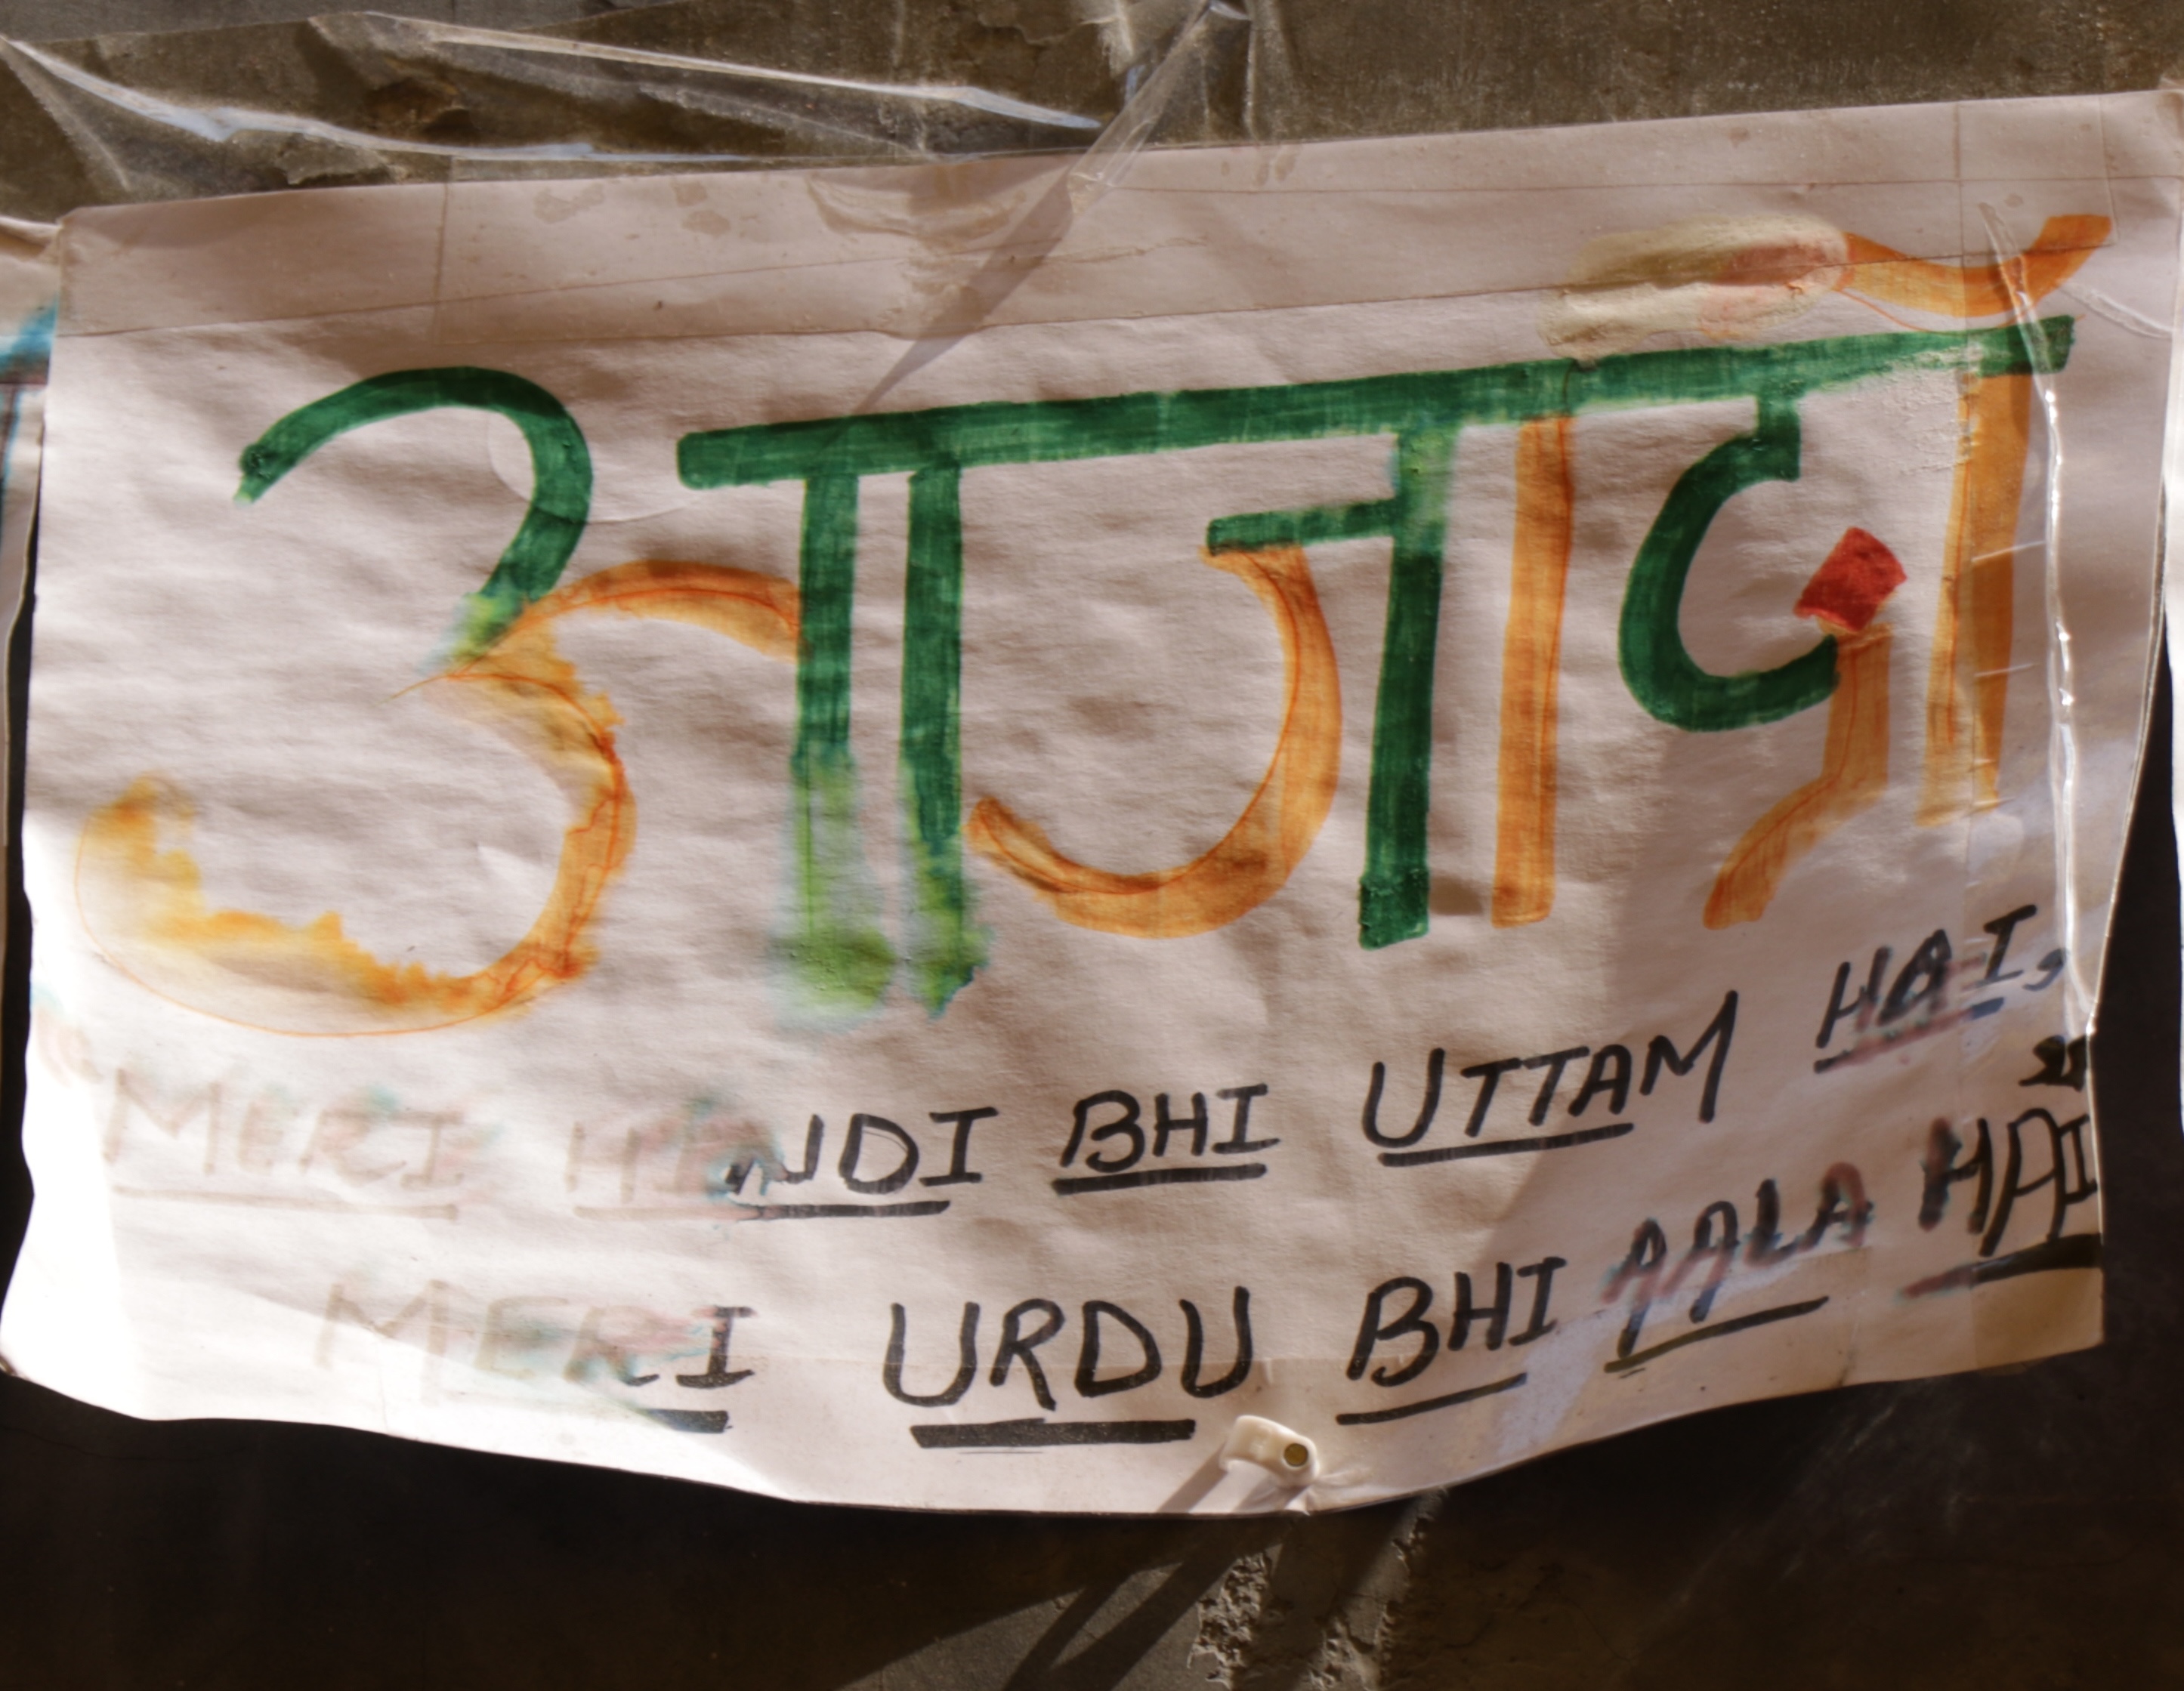 आजादी
"MERI HINDI BHI UTTAM HAI,
MERI URDU BHI AALA HAI"